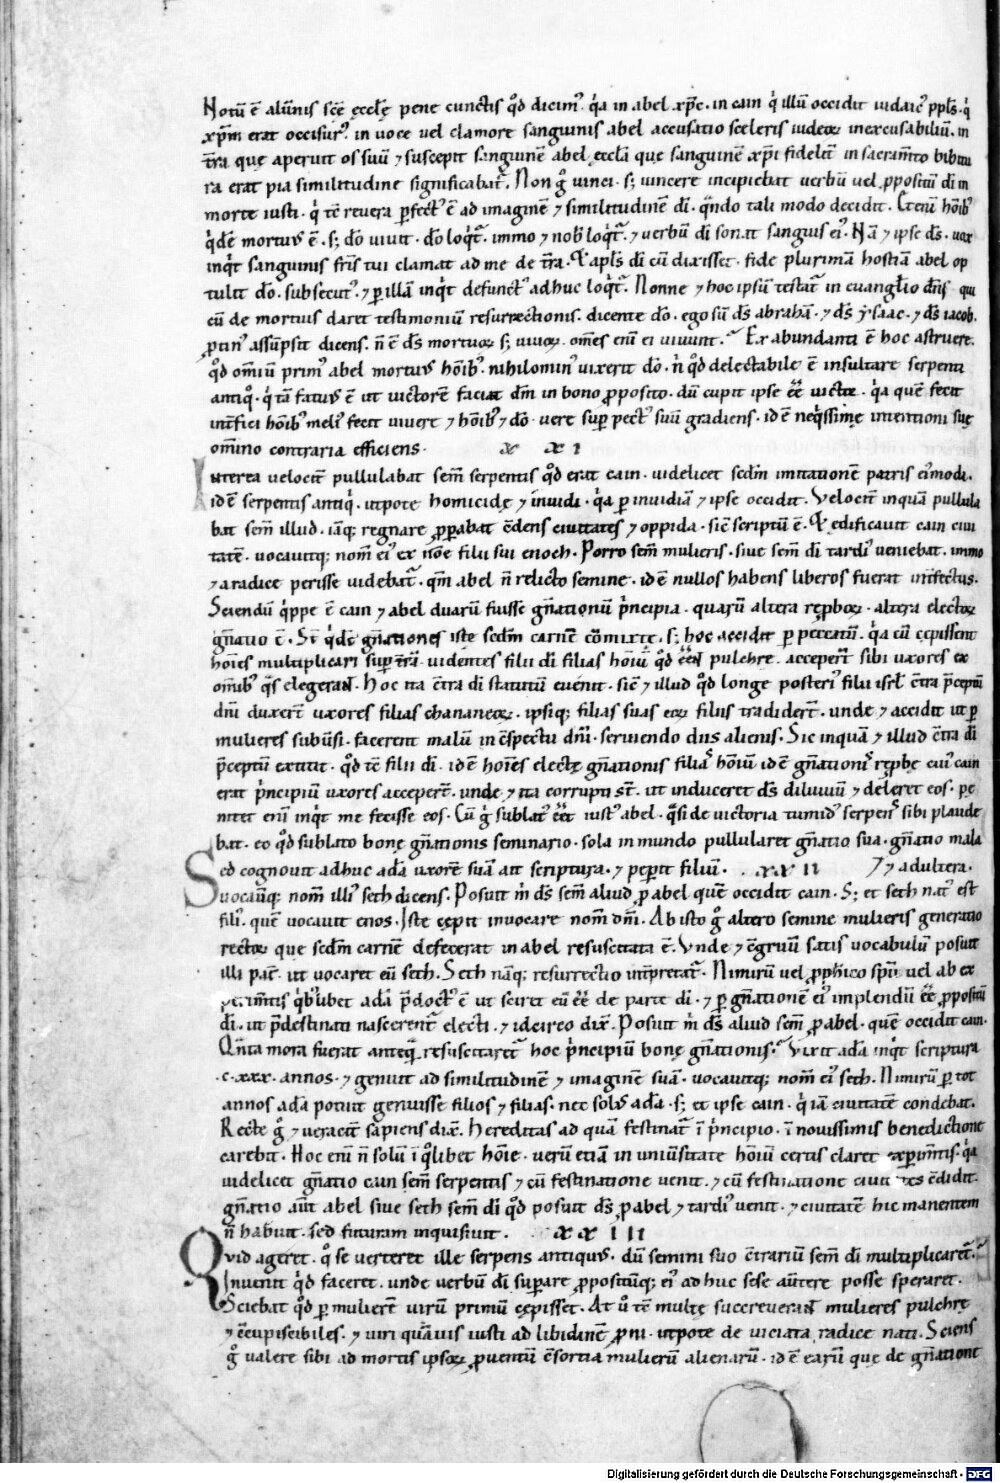 Notū ē alūnis scē ęcclę pene cunctis q̊d dicimꝰ. q̇a in abel xp̄c. in cain q̇ illū occidit iudaicꝰ ppl̄s. q̇
xp̄m erat occisurꝰ. in uoce uel clamore sanguinis abel accusatio sceleris iudeoꝝ inexcusabiliū. in
t̄ra quę aperuit os suū ⁊ suscepit sanguinē abel ęccl̄a que sanguinē xp̄i fidelit̄ in sacram̄to bibitu
ra erat pia similitudine significabat᷑. Non g̊ uinci. s; uincere incipiebat uerbū uel ꝓpositū dī in
morte iusti. q̇ tē reuera ꝑfectꝰ ē ad imaginē ⁊ similitudinē dī. qn̄do tali modo decidit. Etenī hōibꝰ
q̇dē mortuꝰ ē. s; dō uiuit. dō loq̇t᷑. immo ⁊ nob̄ loq̇t᷑. ⁊ uerbū dī sonat sanguis eiꝰ. Nā ⁊ ipse d̄s. uox
inq̇t sanguinis fr̄is tui clamat ad me de t̄ra. Et apl̄s dī cū dixisset. fide plurimā hostiā abel op
tulit dō. subsecutꝰ. ⁊ ꝑ illā inq̇t defunctꝰ adhuc loq̇t᷑. Nonne ⁊ hoc ipsū testat᷑ in euangl̄io dn̄s qui
cū de mortuis daret testimoniū resurrectionis. dicente dō. ego sū d̄s abrahā. ⁊ d̄s ysaac. ⁊ d̄s iacob.
ꝓtinꝰ assūpsit dicens. n̄ ē d̄s mortuoꝝ s; uiuoꝝ. om̄es enī ei uiuunt. Ex abundanti ē hoc astruere.
q̊d omiū primꝰ abel mortuꝰ hōibꝰ. nihilominꝰ uixerit dō. n̄ q̊d delectabile ē insultare serpenti
antiq̊. q̇ tā fatuꝰ ē ut uictorē faciat dm̄ in bono ꝓposito. dū cupit ipse eē uictor. q̇a quē fecit
int̄fici hōibꝰ meliꝰ fecit uiuere ⁊ hōibꝰ ⁊ dō. uere suꝑ pectꝰ suū gradiens. id ē neq̇ssimę intentioni suę
om̄ino contraria efficiens. x xxi
Interea uelocit̄ pullulabat sem̄ serpentis q̊d erat cain. uidelicet scdm̄ imitationē patris eiꝰmodi.
id ē serpentis antiq̇. utpote homicidę ⁊ inuidi. q̇a ꝑ inuidiā ⁊ ipse occidit. Velocit̄ inquā pullula
bat sem̄ illud. iāq; regnare ꝓꝑabat c̄dens ciuitates ⁊ oppida. sic̄ scriptū ē. Et edificauit cain ciui
tatē. uocauitq; nom̄ eiꝰ ex noīe filii sui enoch. Porro sem̄ mulieris. siue sem̄ dī tardiꝰ ueniebat. immo
⁊ a radice perisse uidebat᷑. qm̄ abel n̄ relicto semine. id ē nullos habens liberos fuerat int̄fectus.
Sciendū q̇ppe ē cain ⁊ abel duarū fuisse gn̄ationū p̄ncipia. quarū altera reꝓboꝝ. altera electoꝝ
gn̄atio ē. Et q̇dē gn̄ationes iste scdm̄ carnē cōmixtę. s; hoc accidit ꝑ peccatū. q̇a cū cępissent
hōies multiplicari suꝑ t̄rā. uidentes filii dī filias hōiū q̊d eēnt pulchrę. acceperūt sibi uxores ex
omībꝰ q̇s elegerant. Hoc ita c̄tra dī statutū euenit. sic̄ ⁊ illud q̊d longe posteriꝰ filii isrl̄ c̄tra p̄ceptū
dn̄i duxerūt uxores filias chananeoꝝ. ipsiq; filias suas eoꝝ filiis tradiderūt. unde ⁊ accidit ut ꝑ
mulieres subūsi. facerent malū in c̄spectu dn̄i. seruiendo diis alienis. Sic inquā ⁊ illud c̄tra dī
p̄ceptū extitit. q̊d tē filii dī. id ē hōies electę gn̄ationis filias hōiū id ē gn̄ationis reꝓbę cuiꝰ cain
erat p̄ncipiū uxores acceperūt. unde ⁊ ita corrupti sū̄t. ut induceret d̄s diluuiū ⁊ deleret eos. pę
nitet enī inq̇t me fecisse eos. Cū g̊ sublatꝰ eēt iustꝰ abel. q̇si de uictoria tumidꝰ serpens sibi plaude
bat. eo q̊d sublato bonę gn̄ationis seminario. sola in mundo pullularet gn̄atio sua. gn̄atio mala
Sed cognouit adhuc adā uxorē suā ait scriptura. ⁊ peꝑit filiū. .xxii ⁊ adultera.
uocauitq; nom̄ illiꝰ seth dicens. Posuit m̄ d̄s sem̄ aliud ꝓ abel quē occidit cain. S; et seth natꝰ est
filiꝰ. quē uocauit enos. Iste cępit inuocare nom̄ dn̄i. Ab isto g̊ altero semine mulieris generatio
rectoꝝ que scdm̄ carnē defecerat in abel resuscitata ē. Vnde ⁊ c̄gruū satis uocabulū posuit
illi pat̄. ut uocaret eū seth. Seth nāq; resurrectio int̄pretat᷑. Nimirū uel ꝓph̄ico sp̄u uel ab ex
perim̄tis q̇b'libet adā p̄doctꝰ ē ut sciret eū eē de parte dī. ⁊ ꝑ gn̄ationē eiꝰ implendū eē ꝓpositū
dī. ut p̄destinati nascerent᷑ electi. ⁊ idcirco dix̄. Posuit m̄ d̄s aliud sem̄ ꝓ abel. quē occidit cain.
Qn̄ta mora fuerat anteq̄ resuscitaret᷑ hoc p̄ncipiū bonę gn̄ationis. Vixit adā inq̇t scriptura
.c.xxx. annos. ⁊ genuit ad similitudinē ⁊ imaginē suā. uocauitq; nom̄ eiꝰ seth. Nimirū ꝑ tot
annos adā potuit genuisse filios ⁊ filias. nec solꝰ adā. s; et ipse cain. q̇ iā ciuitatē condebat.
Recte g̊ ⁊ ueracit̄ sapiens dic̄. Hereditas ad quā festinat᷑ ī p̄ncipio. ī nouissimis benedictione
carebit. Hoc enī n̄ solū ī q̊libet hōie. uerū etiā in uniūsitate hōiū certis claret experim̄tis. q̇a
uidelicet gn̄atio cain sem̄ serpentis ⁊ cū festinatione uenit. ⁊ cū festinatione ciuitates c̄didit.
gn̄atio aūt abel siue seth sem̄ dī q̊d posuit d̄s ꝓ abel ⁊ tardiꝰ uenit. ⁊ ciuitatē hic manentem
n̄ habuit. sed futuram inquisiuit. xxiii
Quid ageret. q̊ se uerteret ille serpens antiquꝰ. dū semini suo c̄trariū sem̄ dī multiplicaret᷑.
Inuenit q̇d faceret. unde uerbū dī suꝑare ꝓpositūq; eiꝰ adhuc sese aūtere posse speraret.
Sciebat q̊d ꝑ mulierē uirū primū cępisset. At ů tē multę succreuerant mulieres pulchrę
⁊ c̄cupiscibiles. ⁊ uiri quāuis iusti ad libidinē ꝓni. utpote de uiciata radice nati. Sciens
g̊ ualere sibi ad mortis ipsoꝝ ꝓuentū c̄sortia mulierū alienarū. id ē earū quę de gn̄atione
Digitalisierung gefördert durch die Deutsche Forschungsgemeinschaft - DFG